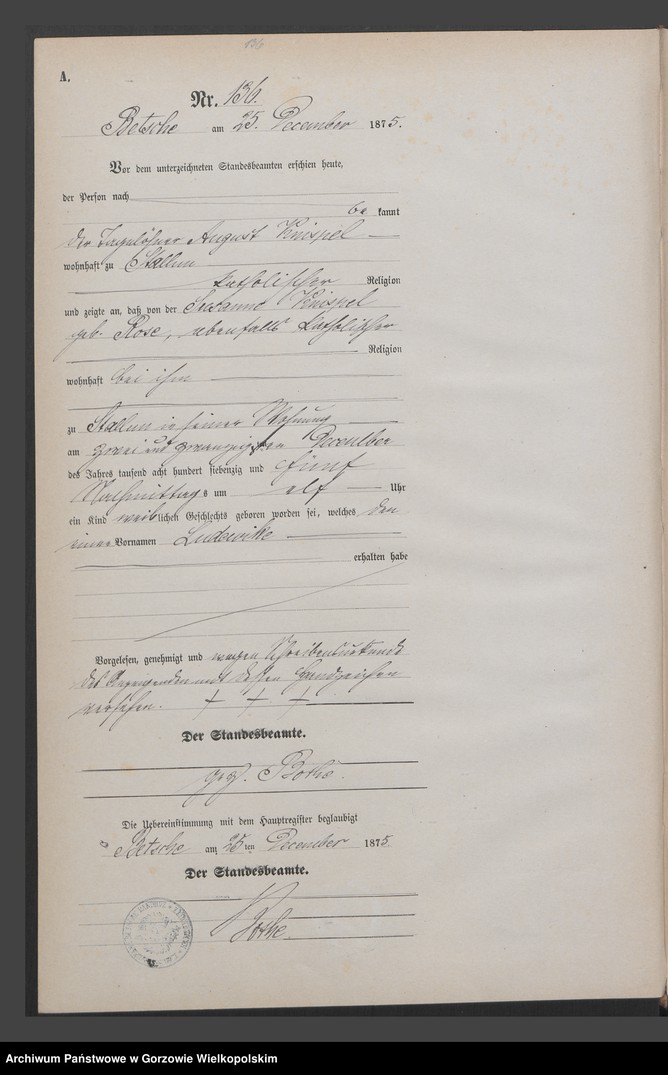 A.
Nr. 136.
Betsche am 25. December 1875.
Vor dem unterzeichneten Standesbeamten erschien heute,
der Person nach
be kannt
der Tagelöhner August Knispel
wohnhaft zu Stallun
katholischer Religion
und zeigte an, daß von der Susanne Knispel
geb. Rose, ebenfalls katholischer
Religion
wohnhaft bei ihm
zu Stallun in seiner Wohnung
am zwei und zwanzigsten December
des Jahres tausend acht hundert siebenzig und fünf
Nachmittags um elf Uhr
ein Kind weiblichen Geschlechts geboren worden sei, welches den
einen Vornamen Ludewike
erhalten habe
Vorgelesen, genehmigt und wegen Schreibensunkunde
des Anzeigenden mit dessen Handzeichen
versehen. + + +
Der Standesbeamte.
gez. Bothe.
Die Uebereinstimmung mit dem Hauptregister beglaubigt
Betsche am 25 ten December 1875
Der Standesbeamte.
Bothe.
Archiwum Państwowe w Gorzowie Wielkopolskim